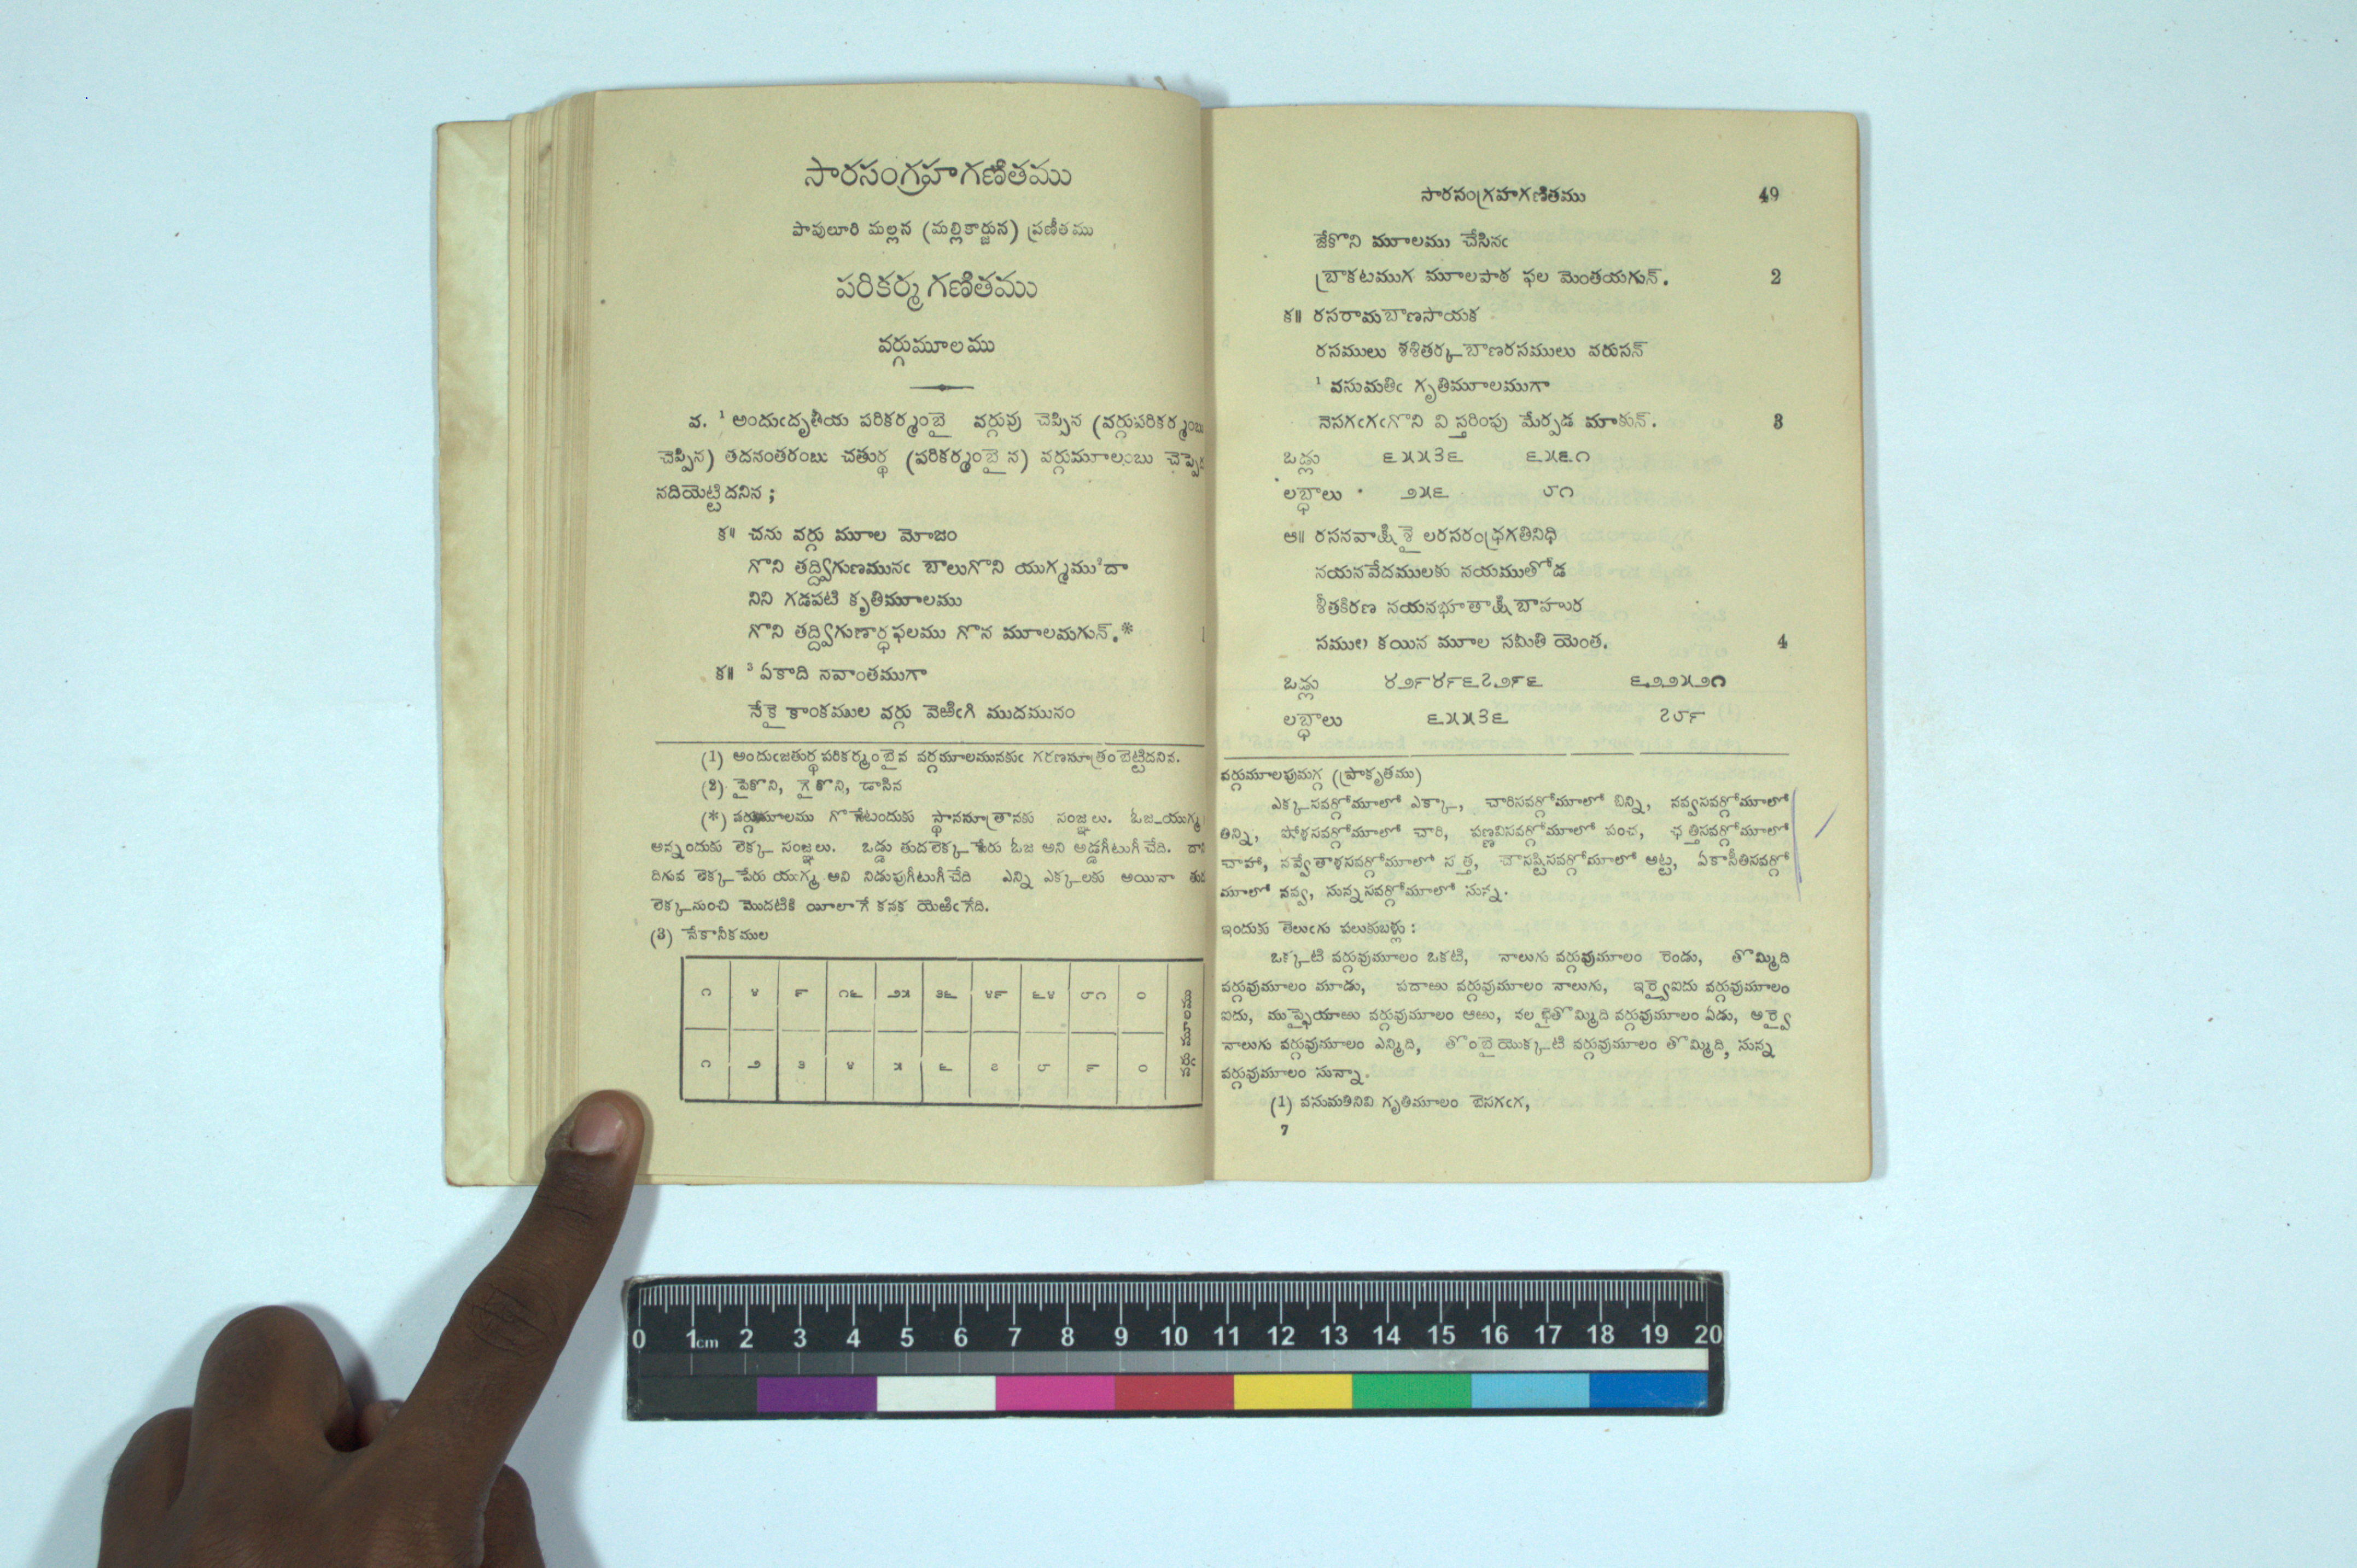 సారసంగ్రహగణితము
పావులూరి మల్లన (మల్లికార్జున) ప్రణీతము
పరికర్మగణితము
వర్గుమూలము
వ. ¹ అందుఁదృతీయ పరికర్మంబై వర్గువు చెప్పిన (వర్గుపరికర్మంబు
చెప్పిన) తదనంతరంబు చతుర్థ (పరికర్మంబైన) వర్గుమూలంబు చెప్పెద
నదియెట్టిదనిన ;
క॥ చను వర్గు మూల మోజం
గొని తద్ద్విగుణమునఁ బాలుగొని యుగ్మము²దా
నిని గడపటి కృతిమూలము
గొని తద్ద్విగుణార్ధఫలము గొన మూలమగున్.*
క॥ ³ ఏకాది నవాంతముగా
నేకై కాంకముల వర్గు వెఱిఁగి ముదమునం
(1) అందుఁజతుర్థపరికర్మంబైన వర్గమూలమునకుఁ గరణసూత్రంబెట్టిదనిన.
(2) పైకొని, గైకొని, డాసిన
(*) వర్గుమూలము గొనేటందుకు స్థానమాత్రానకు సంజ్ఞలు. ఓజ-యుగ్మ
అన్నందుకు లెక్క సంజ్ఞలు. ఒడ్డు తుదలెక్క పేరు ఓజ అని అడ్డగీటుగీచేది.
దిగువ లెక్క పేరు యుగ్మ అని నిడుపుగీటుగీచేది ఎన్ని ఎక్కలకు అయినా తుద
లెక్కనుంచి మొదటికి యీలాగే కనక యెఱిఁగేది.
(3) నేకానీకముల
౧ ౪ ౯ ౧౬ ౨౫ ౩౬ ౪౯ ౬౪ ౮౧ ౦
౧ ౨ ౩ ౪ ౫ ౬ ౭ ౮ ౯ ౦
సారసంగ్రహగణితము 49
జేకొని మూలము చేసినఁ
బ్రాకటముగ మూలపాఠ ఫల మెంతయగున్. 2
క॥ రసరామబాణసాయక
రసములు శశితర్క బాణరసములు వరుసన్
¹ వసుమతిఁ గృతిమూలముగా
నెసగఁగఁగొని విస్తరింపు మేర్పడ మాకున్. 3
ఒడ్లు ౬౫౫౩౬ ౬౫౬౧
లబ్ధాలు ౨౫౬ ౮౧
ఆ॥ రసనవాక్షిశైలరసరంధ్రగతినిధి
నయనవేదములకు నయముతోడ
శీతకిరణ నయనభూతాక్షిబాహుర
సముల కయిన మూల సమితి యెంత. 4
ఒడ్లు ౪౨౯౪౯౬౭౨౯౬ ౬౨౨౫౨౧
లబ్ధాలు ౬౫౫౩౬ ౭౮౯
వర్గుమూలపుమగ్గ (ప్రాకృతము)
ఎక్కసవర్గ్గోమూలో ఎక్కా, చారిసవర్గ్గోమూలో బిన్ని, నవ్వసవర్గ్గోమూలో
తిన్ని, షోళసవర్గ్గోమూలో చారి, పణ్ణవిసవర్గ్గోమూలో పంచ, ఛత్తిసవర్గ్గోమూలో
చాహా, నవ్వేతాళసవర్గ్గోమూలో సత్త, చౌసస్టిసవర్గ్గోమూలో అట్ట, ఏకాసీతిసవర్గ్గో
మూలో నవ్వ, సున్నసవర్గ్గోమూలో సున్న.
ఇందుకు తెలుఁగు పలుకుబళ్లు :
ఒక్కటి వర్గువుమూలం ఒకటి, నాలుగు వర్గువుమూలం రెండు, తొమ్మిది
వర్గువుమూలం మూడు, పదాఱు వర్గువుమూలం నాలుగు, ఇర్వైఐదు వర్గువుమూలం
ఐదు, ముప్ఫైయాఱు వర్గువుమూలం ఆఱు, నలభైతొమ్మిది వర్గువుమూలం ఏడు, అర్వై
నాలుగు వర్గువుమూలం ఎన్మిది, తొంబైయొక్కటి వర్గువుమూలం తొమ్మిది, సున్న
వర్గువుమూలం సున్నా.
(1) వసుమతినివి గృతిమూలం బెసగఁగ,
7
0 1cm 2 3 4 5 6 7 8 9 10 11 12 13 14 15 16 17 18 19 20